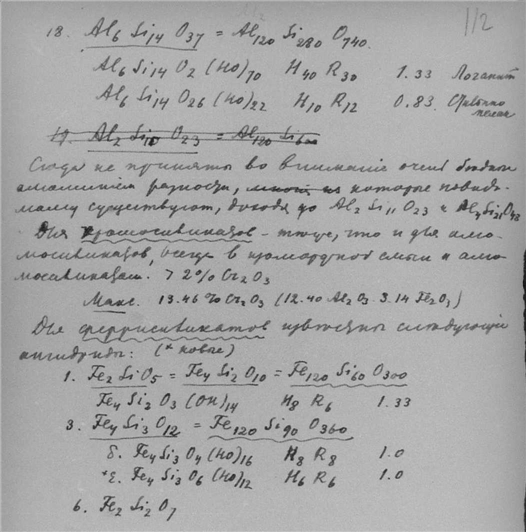 112
18. Al6 Si14 O37 = Al120 Si280 O740.
Al6 Si14 O2 (HO)70 H40 R30 1.33 Логанит
Al6 Si14 O26 (HO)22 H10 R12 0.83.
19. Al2 Si10 O23 = Al120 Si600
Сюда не приняты во внимание очень бедные
алюминием разности, которые повиди-
мому существуют, доходя до Al2 Si11 O23 и Al2 Si21 O48
Для хромосиликатов - тоже, что и для алю-
мосиликатов, всегда в изоморфной смеси с алю-
мосиликатами. 7 2% Cr2O3
Макс. 13.46 % Cr2O3 (12.40 Al2O3. 3.14 Fe2O3)
Для ферросиликатов известны следующие
ангидриды: (* новые)
1. Fe2 SiO5 = Fe4 Si2 O10 = Fe120 Si60 O300
Fe4 Si2 O3 (OH)14 H8 R6 1.33
3. Fe4 Si3 O12 = Fe120 Si90 O360
δ. Fe4 Si3 O4 (HO)16 H8 R8 1.0
*ε. Fe4 Si3 O6 (HO)12 H6 R6 1.0
6. Fe2 Si2 O7